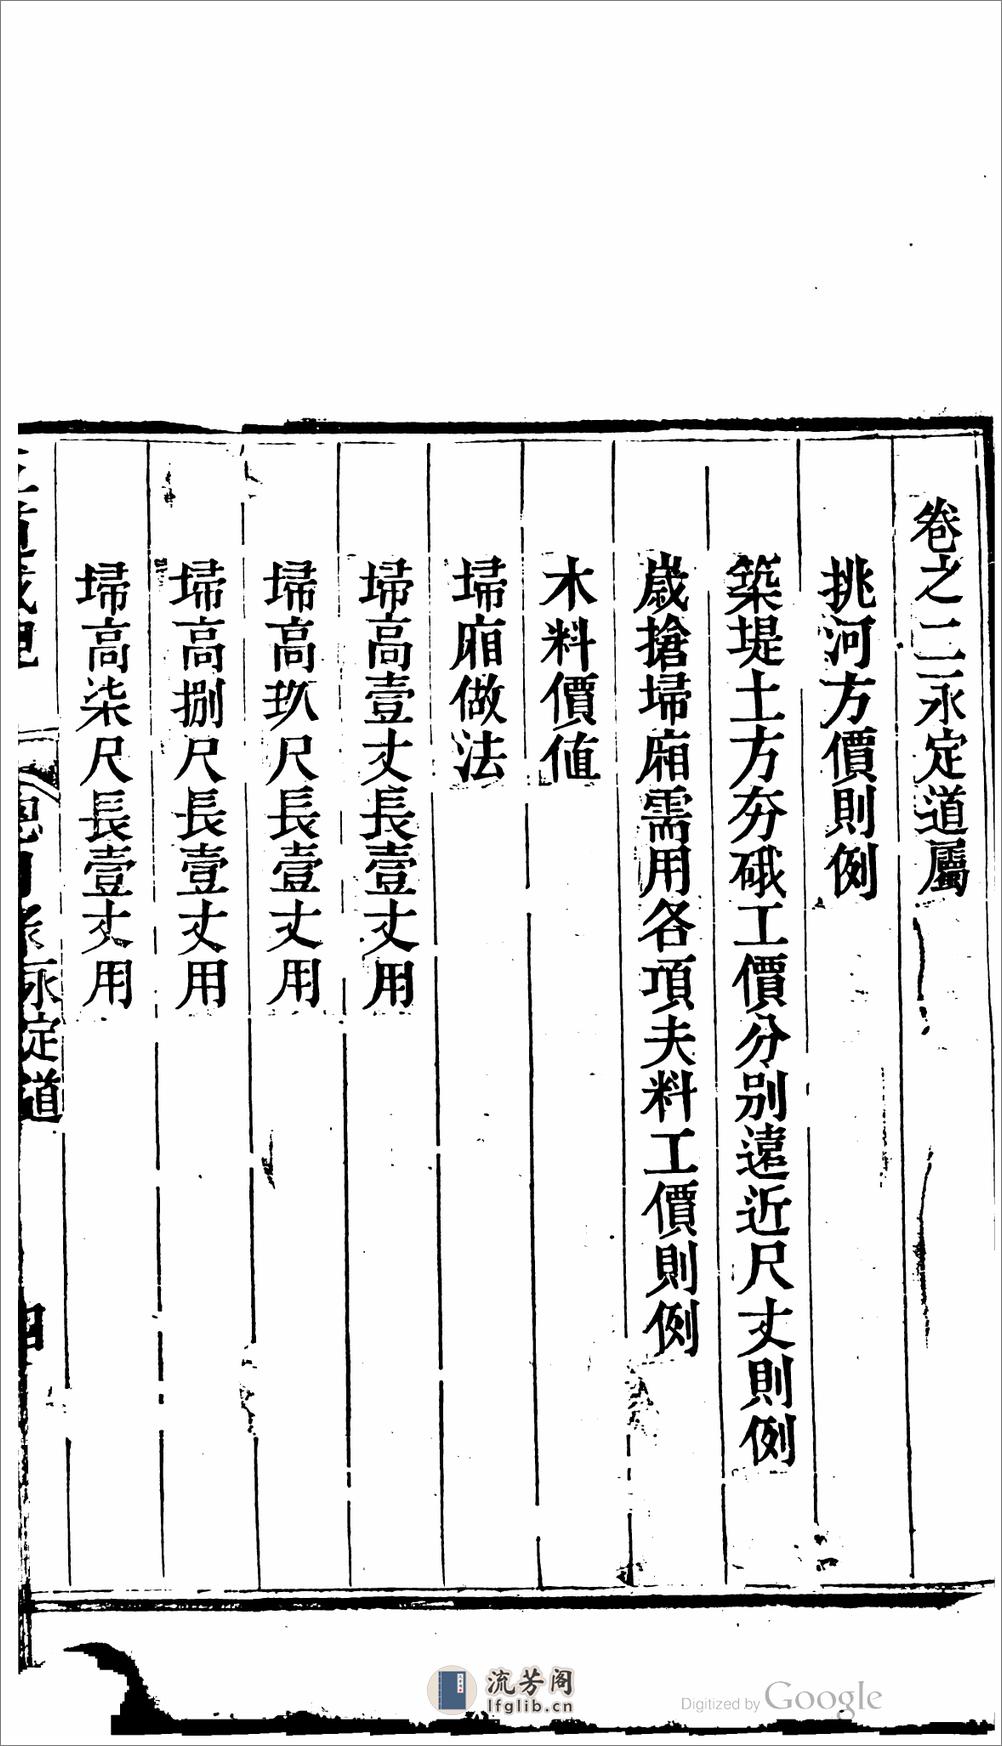 卷之二永定道屬
挑河方價則例
築堤土方夯硪工價分别遠近尺丈則例
歲搶埽廂需用各項夫料工價則例
木料價值
埽廂做法
埽高壹丈長壹丈用
埽高玖尺長壹丈用
埽高捌尺長壹丈用
埽高柒尺長壹丈用
永定道
四
流芳阁
lfglib.cn
Digitized by Google